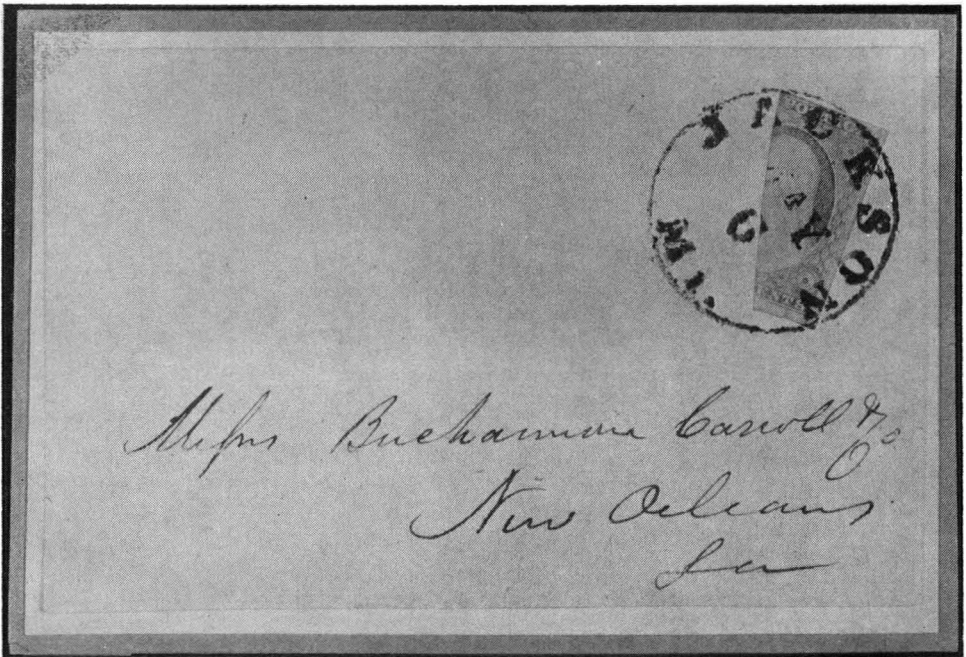 JACKSON
Mi.
Messrs Buchannon Carroll & Co
New Orleans
La